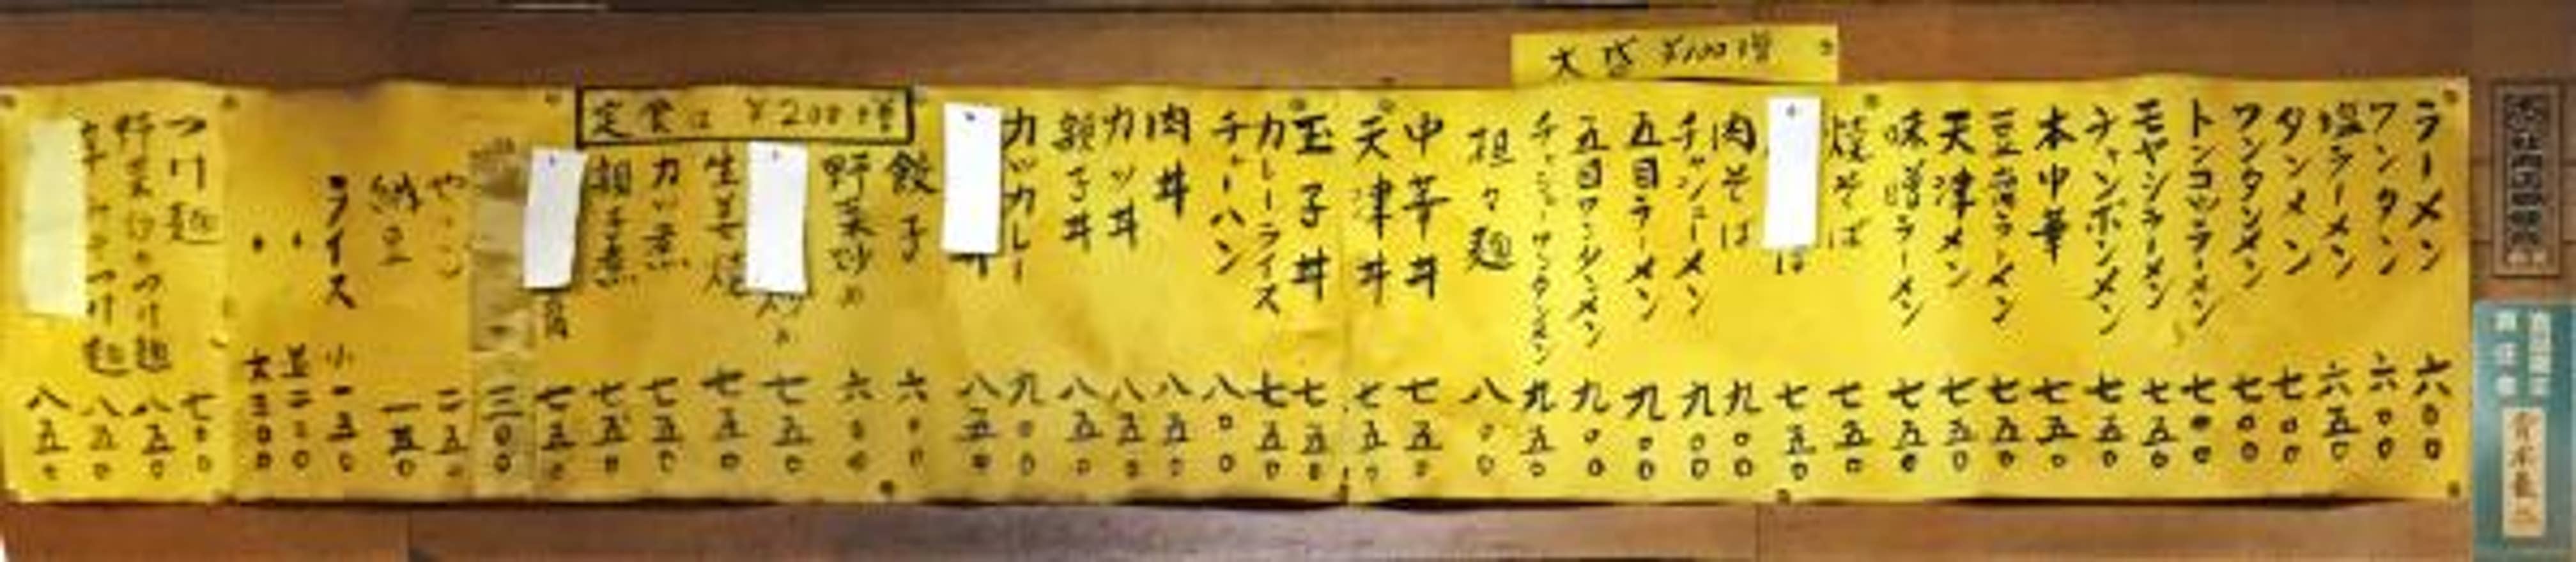 大盛 ¥100増
ラーメン 六〇〇
ワンタン 六〇〇
塩ラーメン 六五〇
タンメン 七〇〇
ワンタンメン 七〇〇
トンコツラーメン 七〇〇
モヤシラーメン 七五〇
チャンポンメン 七五〇
本中華 七五〇
豆腐ラーメン 七五〇
天津メン 七五〇
味噌ラーメン 七五〇
焼そば 七五〇
ば 七五〇
肉そば 九〇〇
チャーシューメン 九〇〇
五目ラーメン 九〇〇
五目ワンタンメン 九〇〇
チャーシューワンタンメン 九五〇
担々麺 八〇〇
中華丼 七五〇
天津丼 七五〇
玉子丼 七五〇
カレーライス 七五〇
チャーハン 八〇〇
肉丼 八五〇
カツ丼 八五〇
親子丼 八五〇
カツカレー 九〇〇
丼 八五〇
定食は ¥200増
餃子 六〇〇
野菜炒め 六〇〇
炒め 七五〇
生姜焼 七五〇
カツ煮 七五〇
親子煮 七五〇
七五〇
三〇〇
二五〇
納豆 一五〇
ライス 小一五〇
〃 並二〇〇
〃 大三〇〇
つけ麺 七〇〇
野菜炒めつけ麺 八五〇
つけ麺 八五〇
八五〇